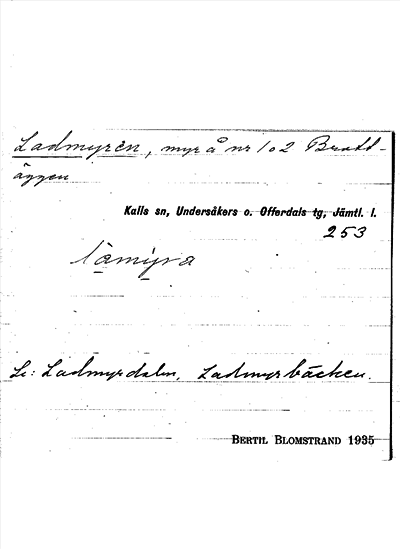 Ladmyren, myr å nr 1 o 2 Bratt-
äggen
Kalls sn, Undersåkers o. Offerdals tg, Jämtl. l.
253
làmy̱ra
Le: Ladmyrdalen, Ladmyrbäcken.
BERTIL BLOMSTRAND 1935